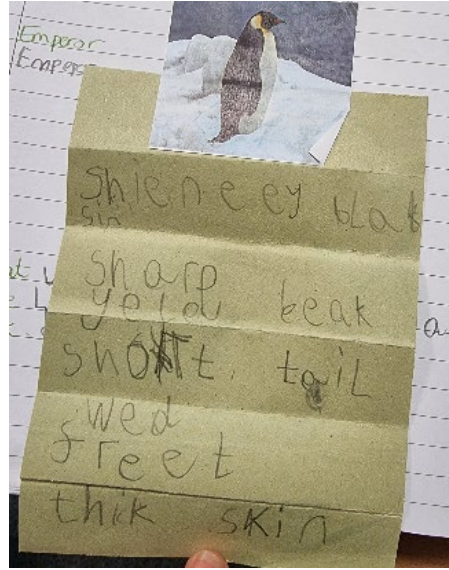 Emperor
Shieneey blak
sin
sharp
yelow beak
short tail
wed
freet
thik skin